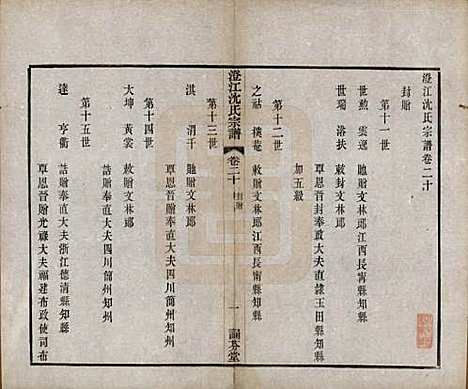 澄江沈氏宗譜卷二十
封贈
第十一世
世勲 雲逵 貤贈文林郎江西長甯縣知縣
世瑞 浴扶 敕封文林郎
覃恩晉封奉直大夫直隷玉田縣知縣
加五級
第十二世
之祜 樸菴 敕贈文林郎江西長甯縣知縣
澄江沈氏宗譜 卷二十 封贈 一 詶芬堂
第十三世
淇 渭千 貤贈文林郎
覃恩晉贈奉直大夫四川簡州知州
第十四世
大坤 黃裳 敕贈文林郎
誥贈奉直大夫四川簡州知州
第十五世
達 亨衢 誥贈奉直大夫浙江德清縣知縣
覃恩晉贈光祿大夫福建布政使司布